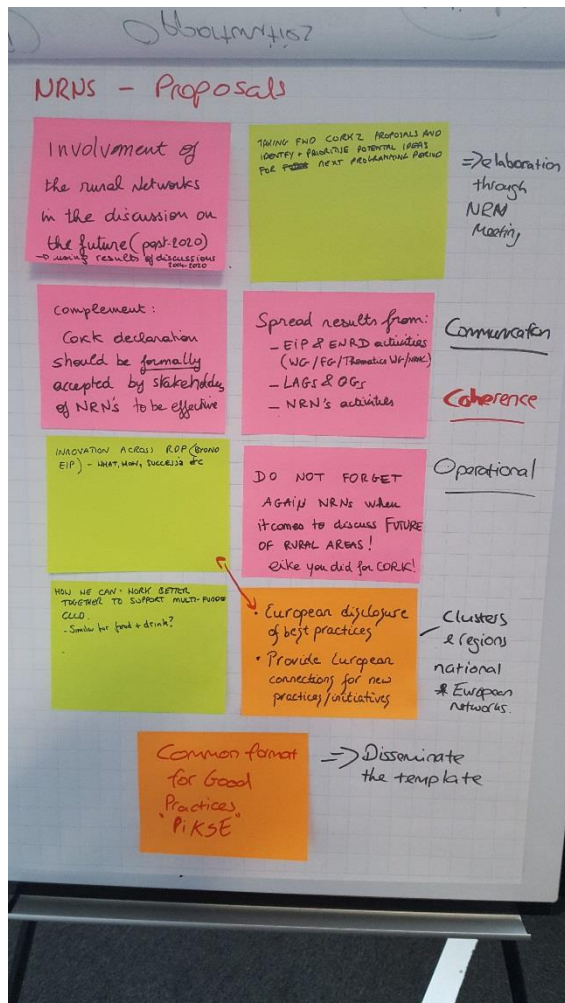 NRNS - Proposals
Involvement of
the rural Networks
in the discussion on
the future (post-2020)
→ using results of discussions
2014-2020
TAKING FWD CORK 2 PROPOSALS AND
IDENTIFY + PRIORITISE POTENTIAL IDEAS
FOR NEXT PROGRAMMING PERIOD
⇒ elaboration
through
NRN
Meeting
Complement:
Cork declaration
should be formally
accepted by stakeholders
of NRN's to be effective
Spread results from:
- EIP & ENRD activities
(WG/FG/Thematics WG/
- LAGS & OGs
- NRN's activities
Communication
Coherence
Operational
INNOVATION ACROSS RDP (BEYOND
EIP) - WHAT, HOW, SUCCESS etc
DO NOT FORGET
AGAIN NRNs when
it comes to discuss FUTURE
OF RURAL AREAS!
like you did for CORK!
HOW WE CAN WORK BETTER
TOGETHER TO SUPPORT MULTI-FUNDED
CLLD.
- Similar for food + drink?
• European disclosure
of best practices
• Provide European
connections for new
practices/initiatives
Clusters
& regions
national
& European
networks.
Common format
for Good
Practices
"PiKSE"
⇒ Disseminate
the template